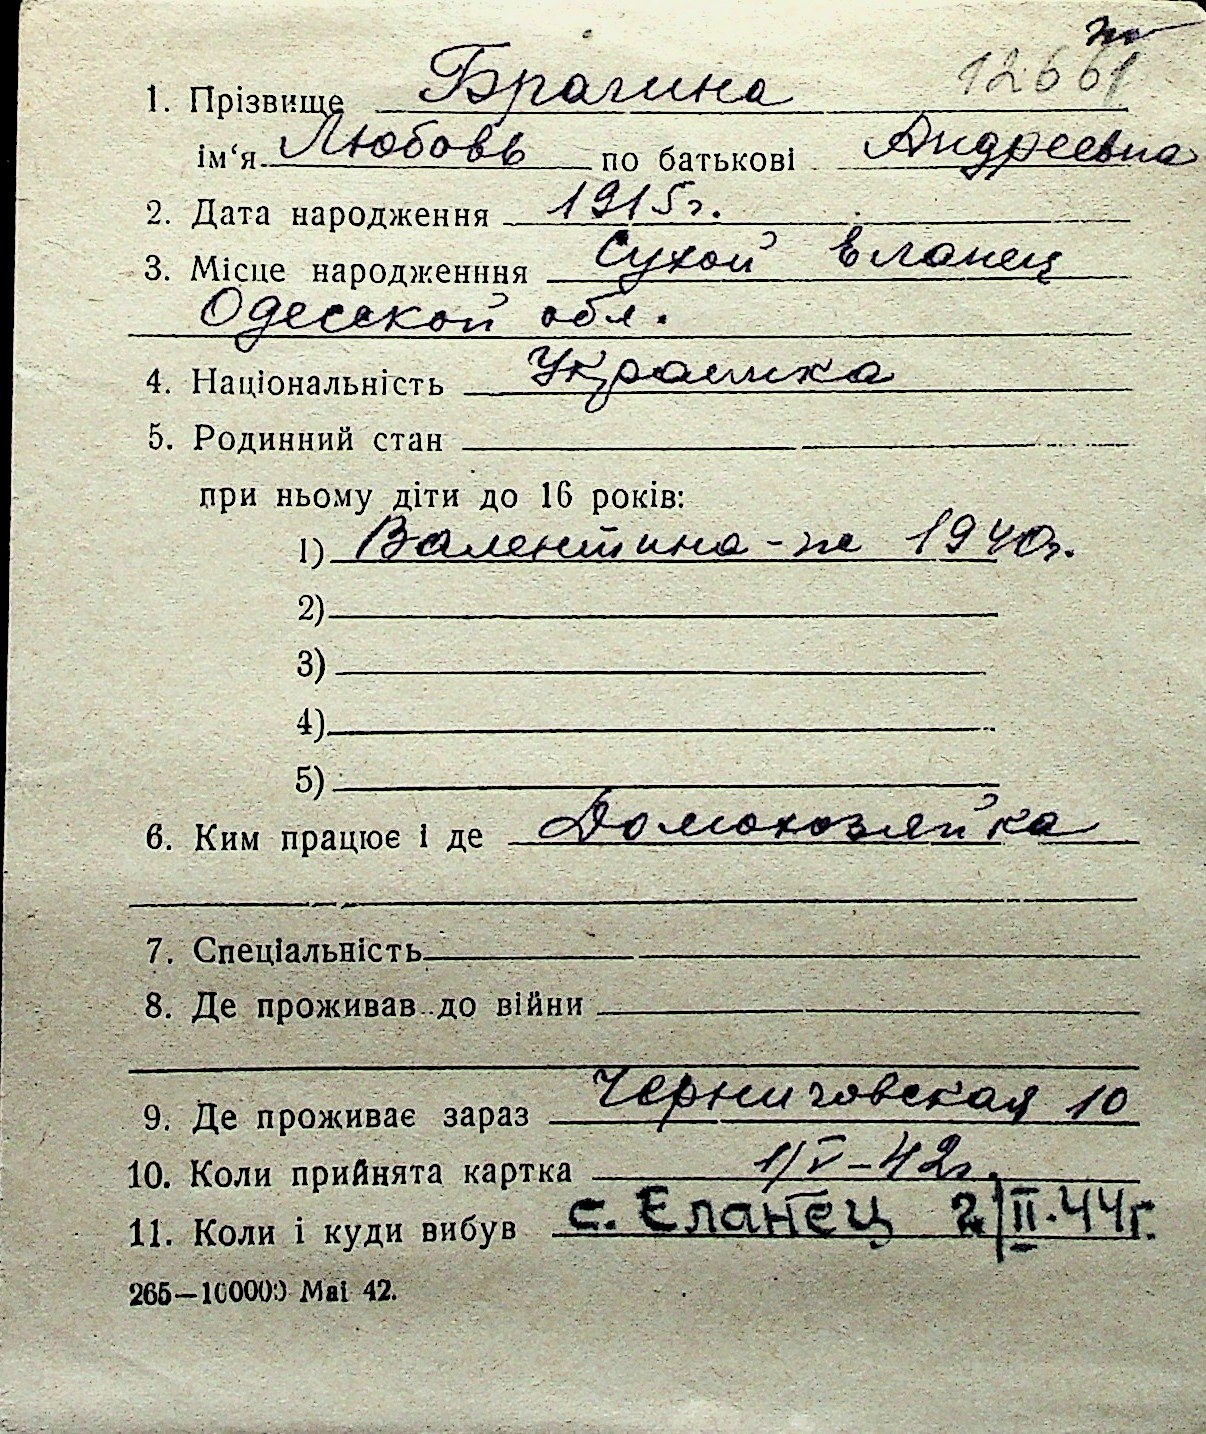 12661
1. Прізвище Брагина
ім‘я Любовь по батькові Андреевна
2. Дата народження 1915г.
3. Місце народженння Сухой Еланец
Одесской обл.
4. Національність Украинка
5. Родинний стан
при ньому діти до 16 років:
1) Валентина - 1940г.
2)
3)
4)
5)
6. Ким працює і де Домохозяйка
7. Спеціальність
8. Де проживав до війни
9. Де проживає зараз Черниговская 10
10. Коли прийнята картка 1/V-42г.
11. Коли і куди вибув с. Еланец 2/II.44г.
265—100000 Маі 42.